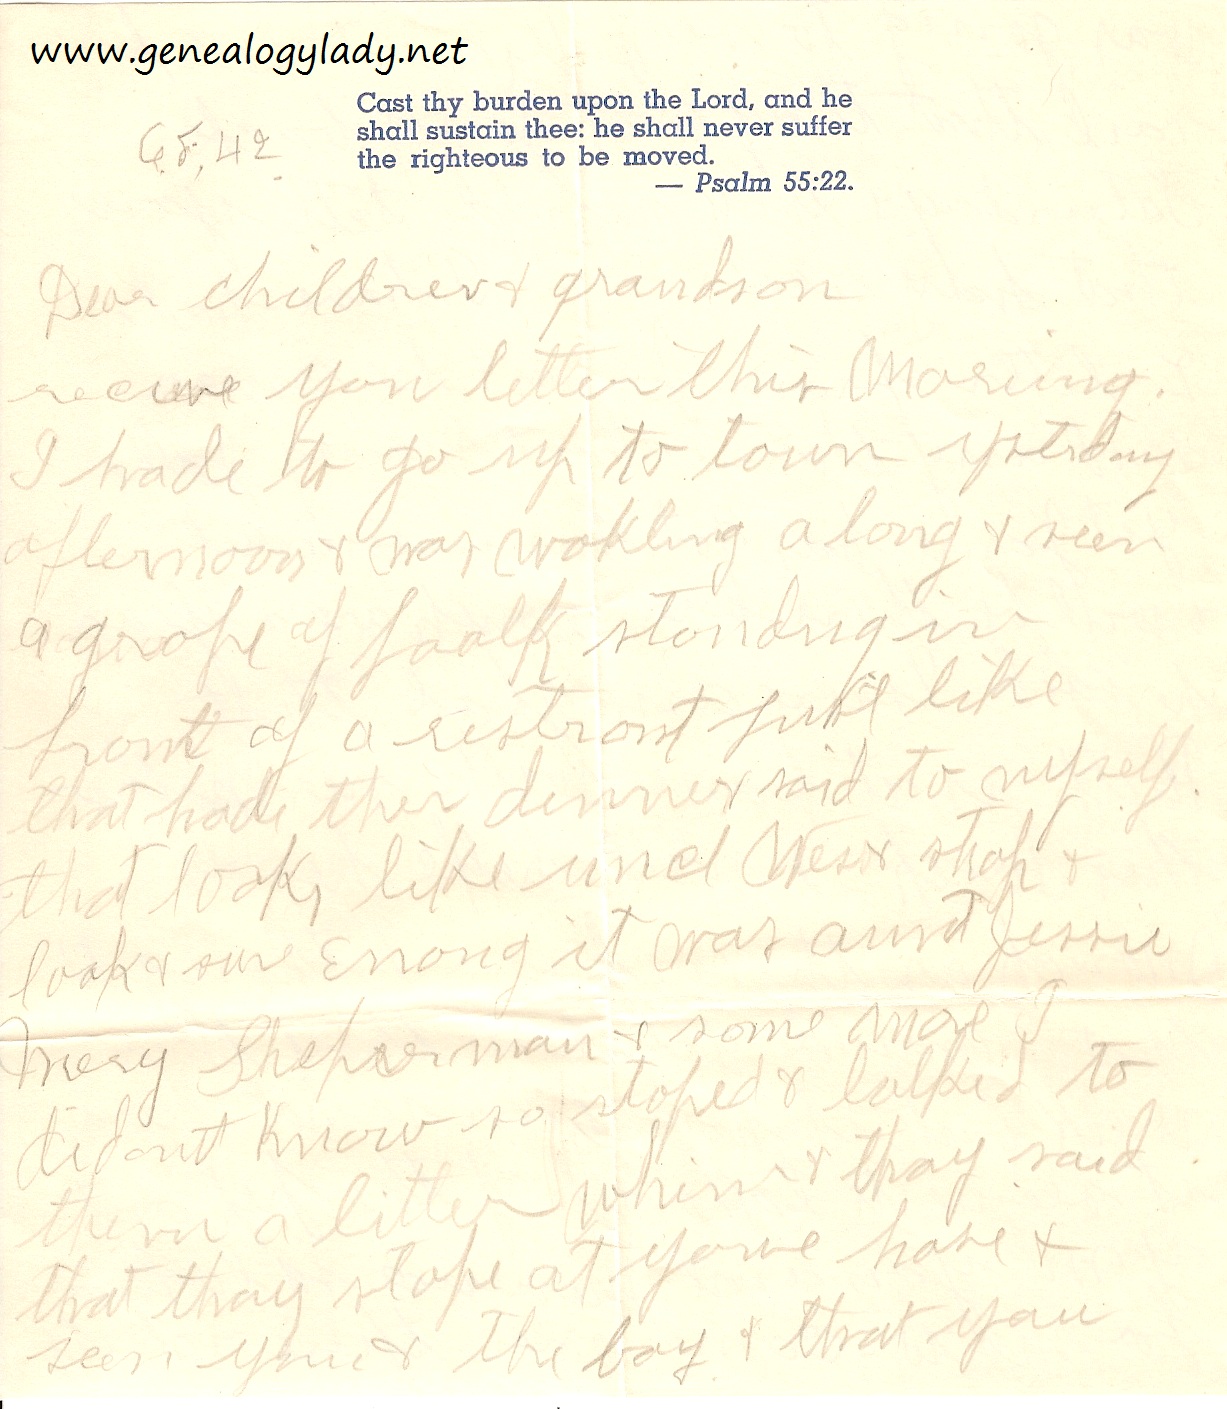 www.genealogylady.net
Cast thy burden upon the Lord, and he
shall sustain thee: he shall never suffer
the righteous to be moved.
— Psalm 55:22.
6.8.42
Dear children & grandson
receive you letter this Morning.
I hade to go up to town ysterday
afternoon & was wokling along & seen
a grope of foolk stonding in
front of a restront like
that hade ther dinner & said to myself.
that look like uncl Wes & stop &
look & sure Enong it was aunt Jessie
Mery Shepherman & some more I
didont know so stoped & talked to
them a litter whin & thay said
that thay stope at youre hose &
seen you & the boy & that you